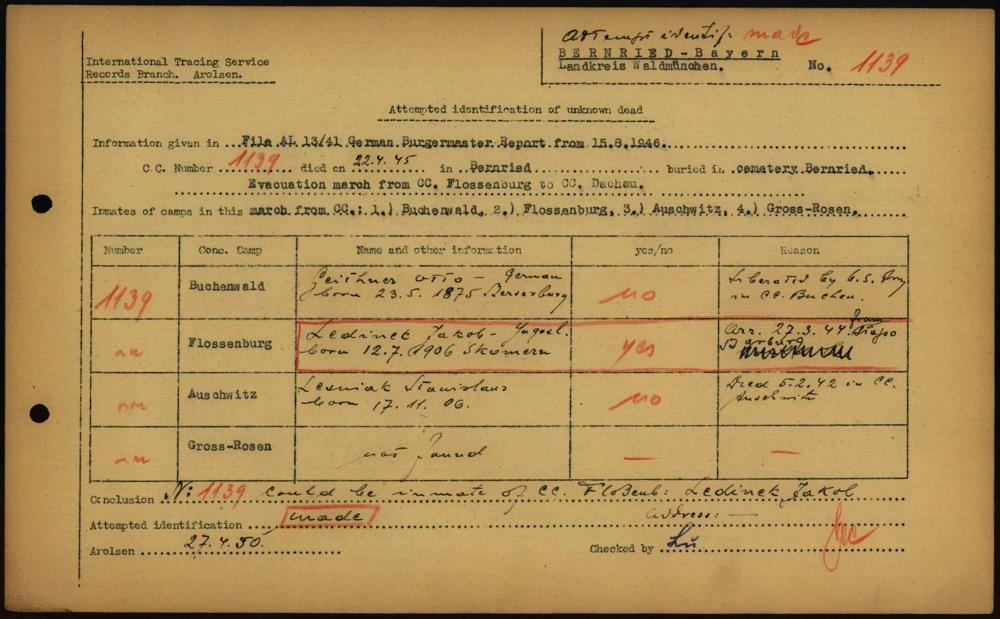 Attempt identif. made
International Tracing Service
Records Branch. Arolsen.
BERNRIED-Bayern
Landkreis Waldmünchen.
No. 1139
Attempted identification of unknown dead
Information given in File AL 13/41 German Burgermaster Report from 15.8.1946.
C.C. Number 1139 died on 22.4.45 in Bernried buried in cemetery Bernried.
Evacuation march from CC. Flossenburg to CC. Dachau.
Inmates of camps in this march from CC.: 1.) Buchenwald, 2.) Flossenburg, 3.) Auschwitz, 4.) Gross-Rosen.
Number Conc. Camp Name and other information yes/no Reason
1139 Buchenwald
Otto - German
born 23.5. 1875
no
Liberated by U.S. Army
in CC. Buchen.
Flossenburg
Ledinek Jakob - Yugosl.
born 12.7.1906 Skomern
yes
Arr. 27.3.44 from Stapo
Marburg
Auschwitz
Lesniak Stanislaus
born 17.11.06.
no
Died 5.2.42 in CC.
Auschwitz
Gross-Rosen
not found
— —
Conclusion N: 1139 could be inmate of CC. Floßenb: Ledinek Jakob
Attempted identification made Address: —
Arolsen 27.4.50. Checked by